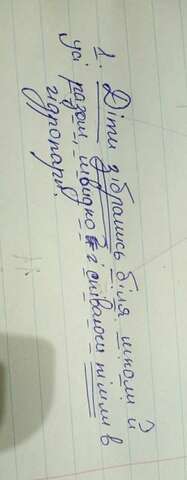 1. Діти зібрались біля школи й
усі разом, швидко й співаючи пішли в
гідропарк.